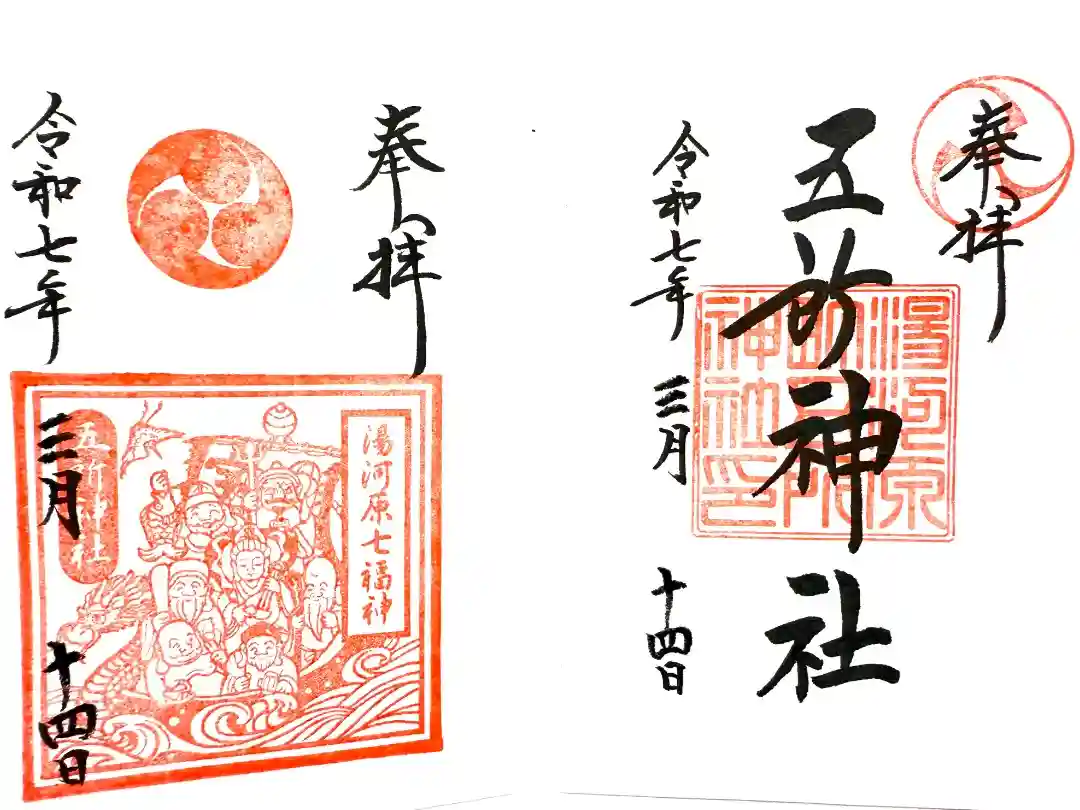 奉拝
五所神社
湯河原
五所
神社印
令和七年
三月
十四日
奉拝
湯河原七福神
五所神社
令和七年
三月
十四日